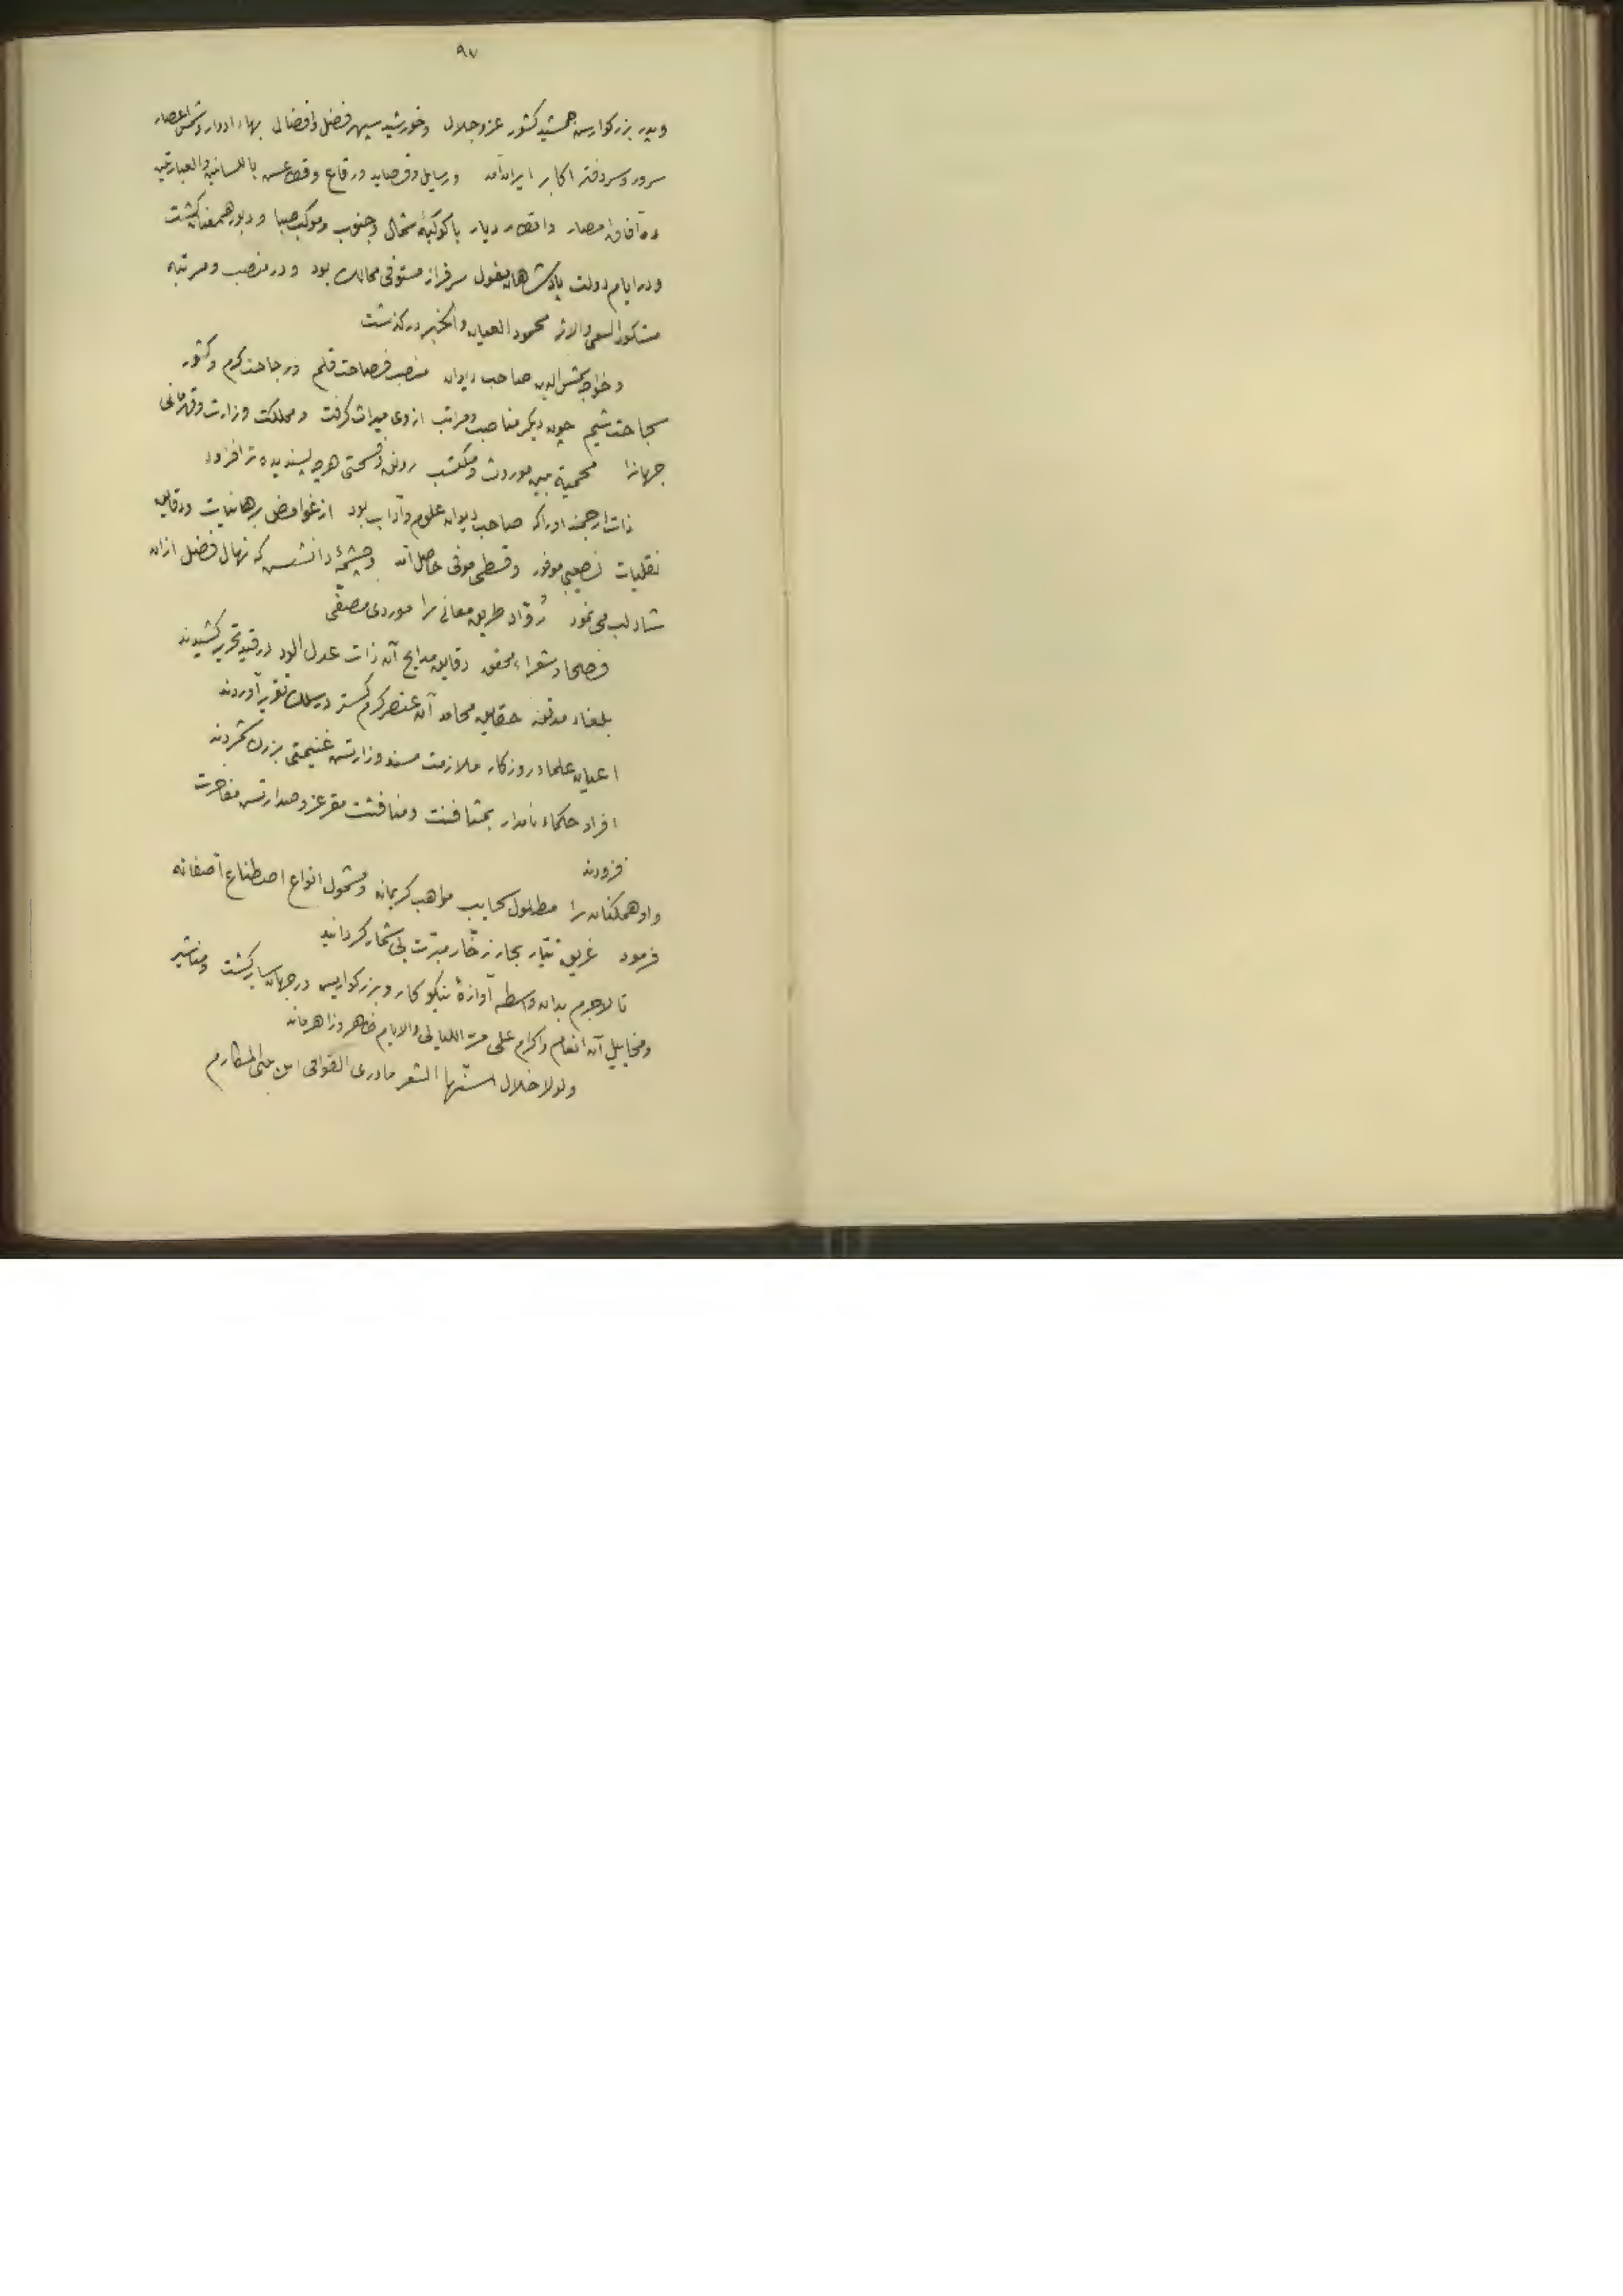 ٩٧
و پدر بزرگوارش جمشید کشور عز و جلال و خورشید سپهر فضل و افضال بهاء ادوار و شمس اعصار
سرور و سردفتر اکابر ایران آمد و رسایل و قصاید و رقاع و قطاعش باللسانین و العبارتین
در آفاق امصار و اقطار دیار با کوکبهٔ شمال و جنوب و موکب صبا و دبور همعنان گشت
و در ایام دولت پادشاهان مغول سرفراز مستوفی ممالک بود و در منصب و مرتبه
مشکور السعی و الاثر محمود العیان و الخبر در کذشت
و خواجه شمس الدین صاحب دیوان منصب فصاحت قلم و رجاحت کرم و کشور
سجاحت شیم چون دیگر مناصب و مراتب از وی میراث گرفت و مملکت وزارت و قهرمانی
جهانرا بین موروث و مکتسب رونق و فسحتی هرچه پسندیده تر افزود
ذات ارجمند او را که صاحب دیوان علوم و آداب بود از غوامض برهانیات و دقایق
نقلیات نصیبی موفور و قسطی موفی حاصل آمد و چشمهٔ دانشش که نهال فضل ازان
شاداب می نمود رُوّاد طریق معانی را موردی مصفّی
فصحا و شعراء محقق دقایق مدایح آن ذات عدل در قید تحریر کشیدند
بلغاء مدقق حقایق محامد آن عنصر کرم گستر در سلک تقریر آوردند
اعیان علماء روزکار ملازمت مسند وزارتش غنیمتی بزرک شمردند
افراد حکماء نامدار بمثافنت و منافثت مقر عز و صدارتش مفاخرت
فزودند
و او همکنان را مطلول سحایب مواهب کریمانه و مشمول انواع اصطناع آصفانه
فرمود غریق تیّار بحار زخّار مبرّت بی شمار کردانید
تا لاجرم بدان واسطه آوازهٔ نیکوکار و بزرکواریش در جهان سایر گشت و مناشیر
و مخاییل آن انعام و اکرام علی مرّ اللیالی و الایام ظاهر و زاهر ماند
و لولا خلال سنّها الشعر ما دری القوافی این یبنی المکارم